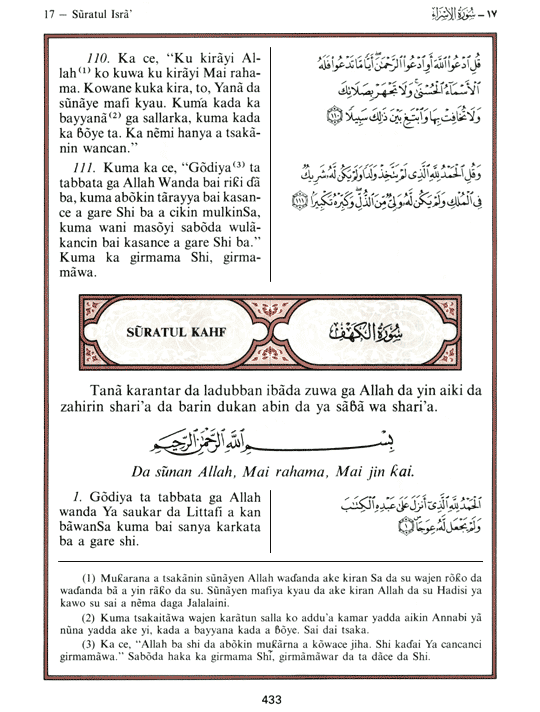 17 — Sūratul Isrā’
١٧ – سُورَةُ الإِسْرَاءِ
110. Ka ce, “Ku kirāyi Al-
lah⁽¹⁾ ko kuwa ku kirāyi Mai raha-
ma. Kowane kuka kira, to, Yanā da
sũnāye mafi kyau. Kuma kada ka
bayyanā⁽²⁾ ga sallarka, kuma kada
ka ɓōye ta. Ka nẽmi hanya a tsakā-
nin wancan.”
قُلِ ادْعُوا اللَّهَ أَوِ ادْعُوا الرَّحْمَٰنَ أَيًّا مَّا تَدْعُوا فَلَهُ
الْأَسْمَاءُ الْحُسْنَىٰ وَلَا تَجْهَرْ بِصَلَاتِكَ
وَلَا تُخَافِتْ بِهَا وَابْتَغِ بَيْنَ ذَٰلِكَ سَبِيلًا ١١٠
111. Kuma ka ce, “Gōdiya⁽³⁾ ta
tabbata ga Allah Wanda bai riƙi ɗā
ba, kuma abōkin tārayya bai kasan-
ce a gare Shi ba a cikin mulkinSa,
kuma wani masōyi sabōda wulā-
kancin bai kasance a gare Shi ba.”
Kuma ka girmama Shi, girma-
māwa.
وَقُلِ الْحَمْدُ لِلَّهِ الَّذِي لَمْ يَتَّخِذْ وَلَدًا وَلَمْ يَكُن لَّهُ شَرِيكٌ
فِي الْمُلْكِ وَلَمْ يَكُن لَّهُ وَلِيٌّ مِّنَ الذُّلِّ وَكَبِّرْهُ تَكْبِيرًا ١١١
SŪRATUL KAHF
سُورَةُ الْكَهْفِ
Tanā karantar da ladubban ibāda zuwa ga Allah da yin aiki da
zahirin shari’a da barin dukan abin da ya sāɓā wa shari’a.
بِسْمِ اللَّهِ الرَّحْمَٰنِ الرَّحِيمِ
Da sũnan Allah, Mai rahama, Mai jin ƙai.
1. Gōdiya ta tabbata ga Allah
wanda Ya saukar da Littafi a kan
bāwanSa kuma bai sanya karkata
ba a gare shi.
الْحَمْدُ لِلَّهِ الَّذِي أَنزَلَ عَلَىٰ عَبْدِهِ الْكِتَابَ
وَلَمْ يَجْعَل لَّهُ عِوَجًا ١
(1) Muƙarana a tsakānin sũnāyen Allah waɗanda ake kiran Sa da su wajen rōƙo da
waɗanda bā a yin rāƙo da su. Sũnāyen mafiya kyau da ake kiran Allah da su Hadisi ya
kawo su sai a nẽma daga Jalalaini.
(2) Kuma tsakaitāwa wajen karātun salla ko addu’a kamar yadda aikin Annabi yā
nũna yadda ake yi, kada a bayyana kada a ɓōye. Sai dai tsaka.
(3) Ka ce, “Allah ba shi da abōkin muƙārna a kōwace jiha. Shi kaɗai Ya cancanci
girmamāwa.” Sabōda haka ka girmama Shi, girmāmāwar da ta dāce da Shi.
433